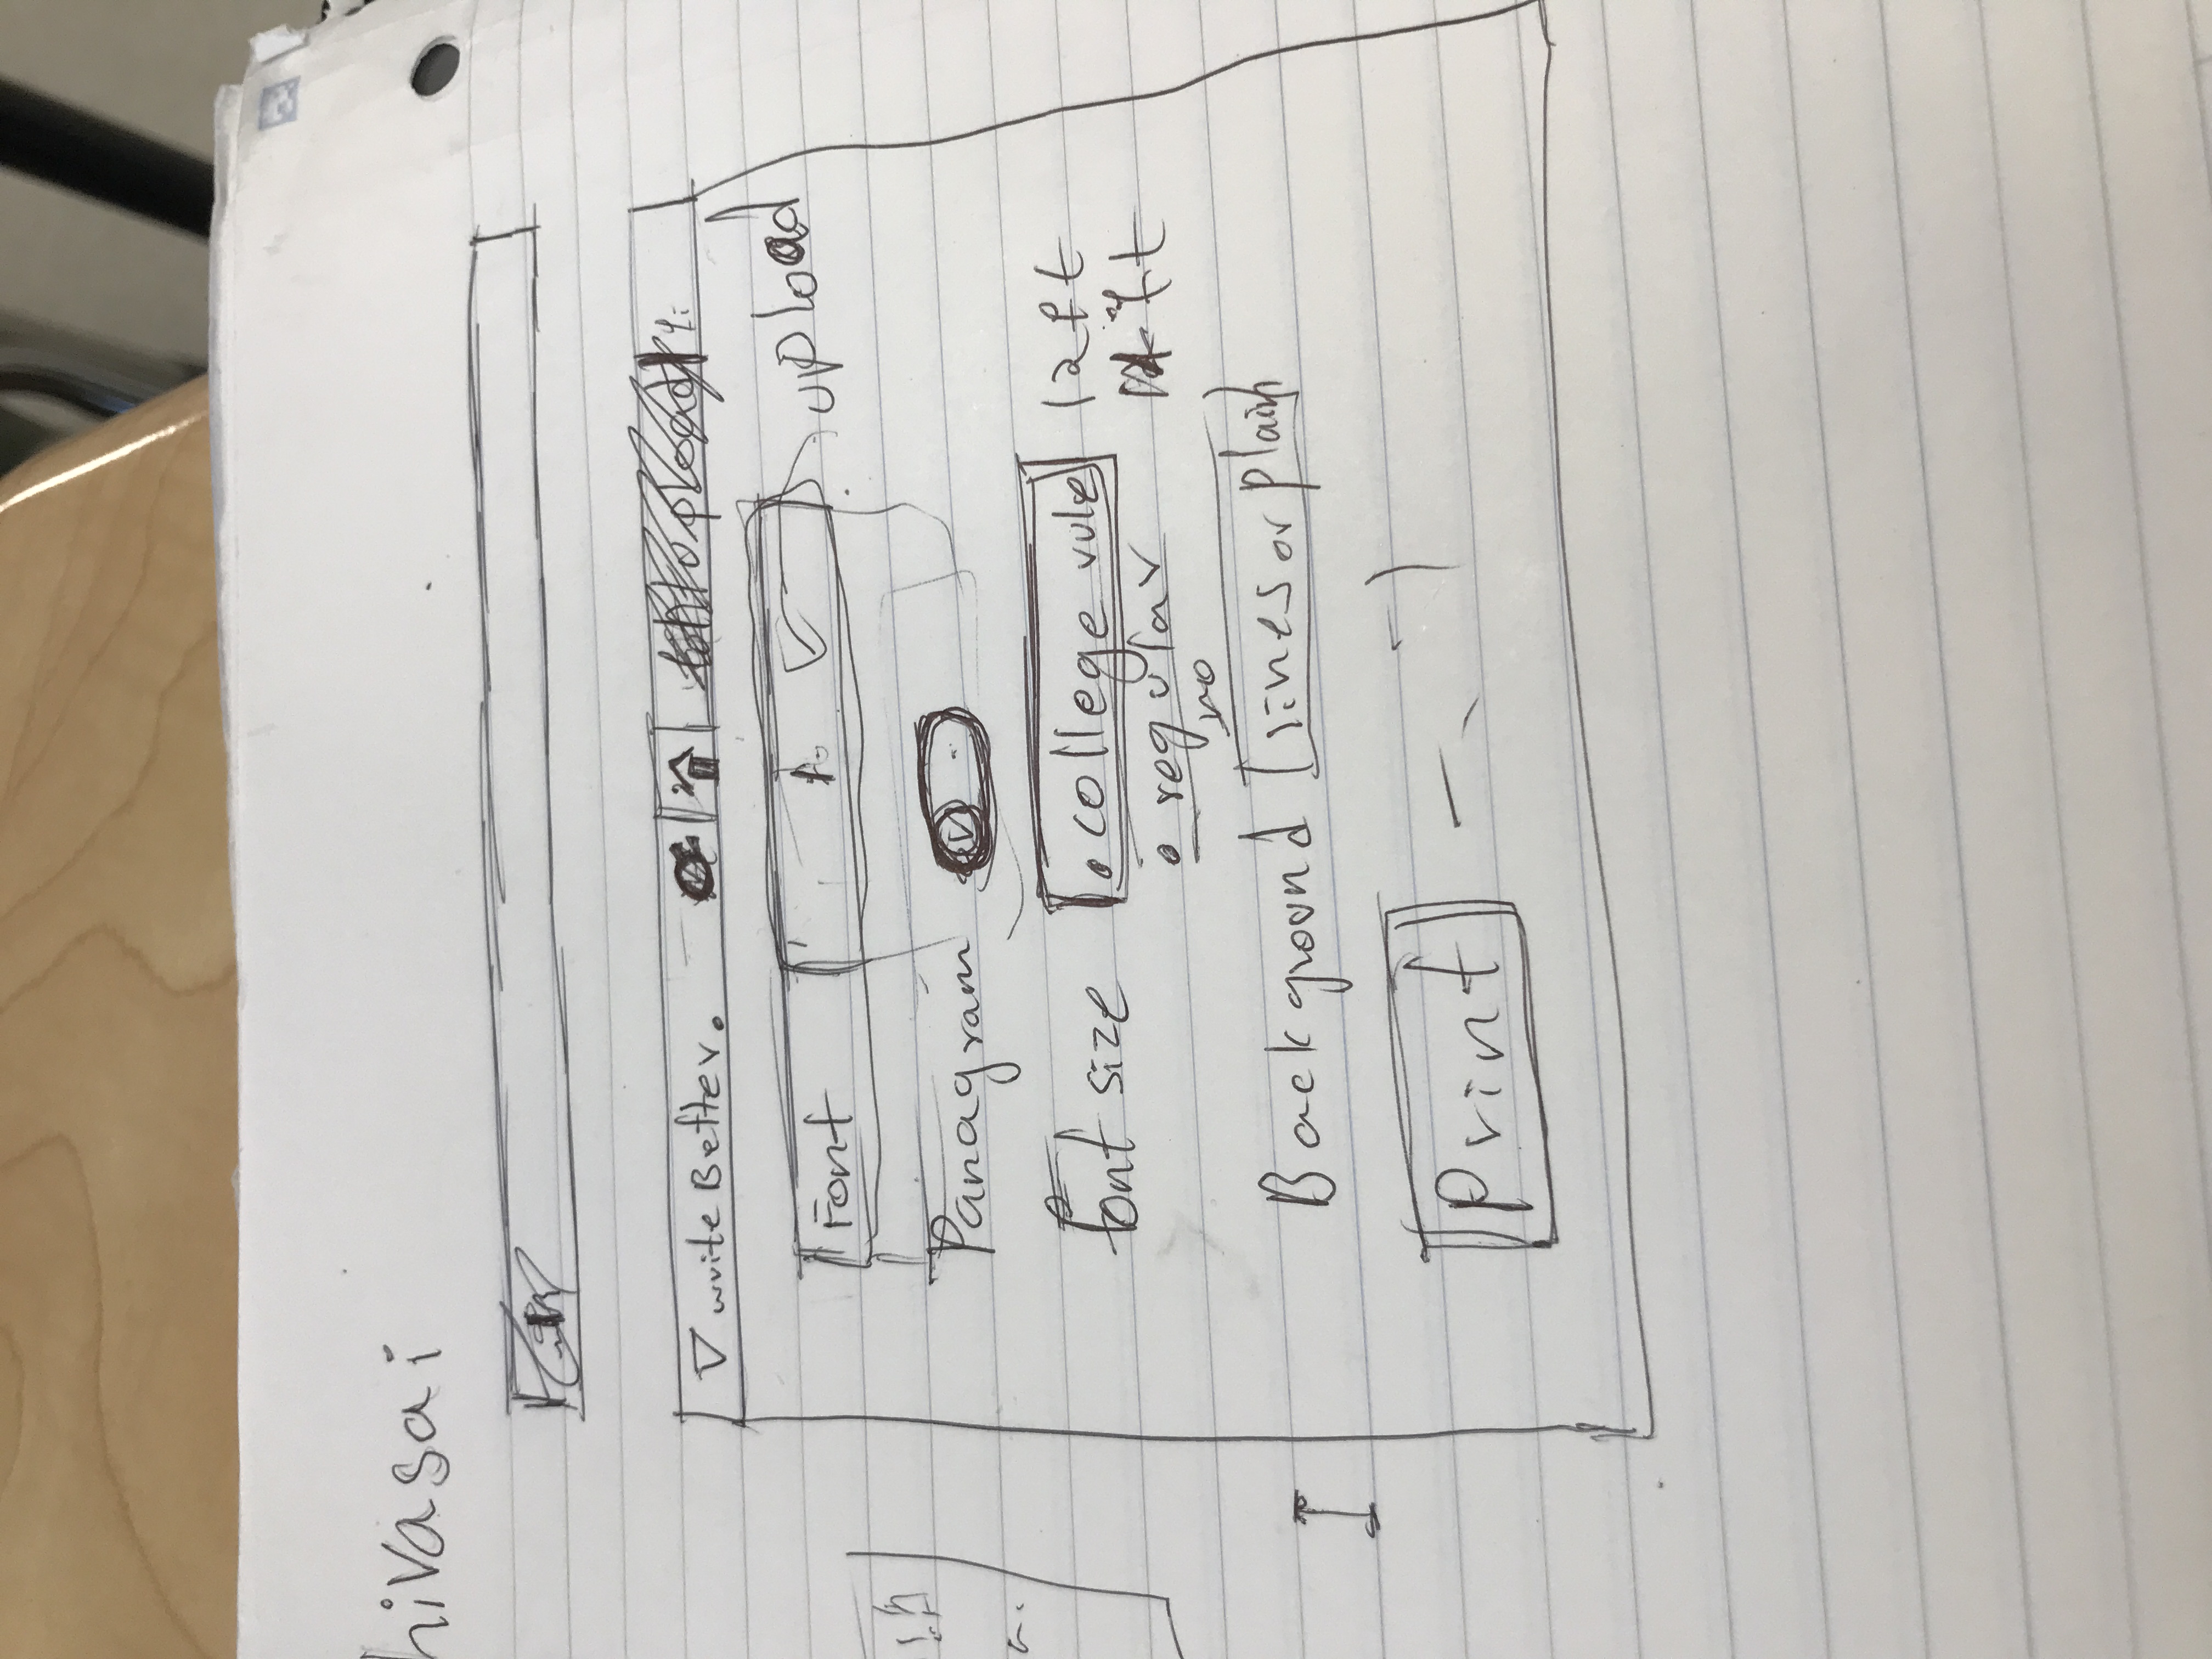 hivasai
write Better.
Font upload
Panagram
font size .college rule 12 ft
. regular
no
Background lines or plain
Print